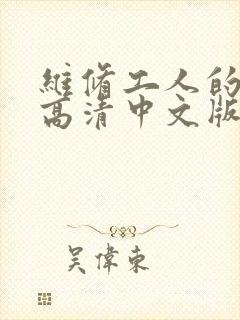 維修工人的
高清中文版
吴偉東